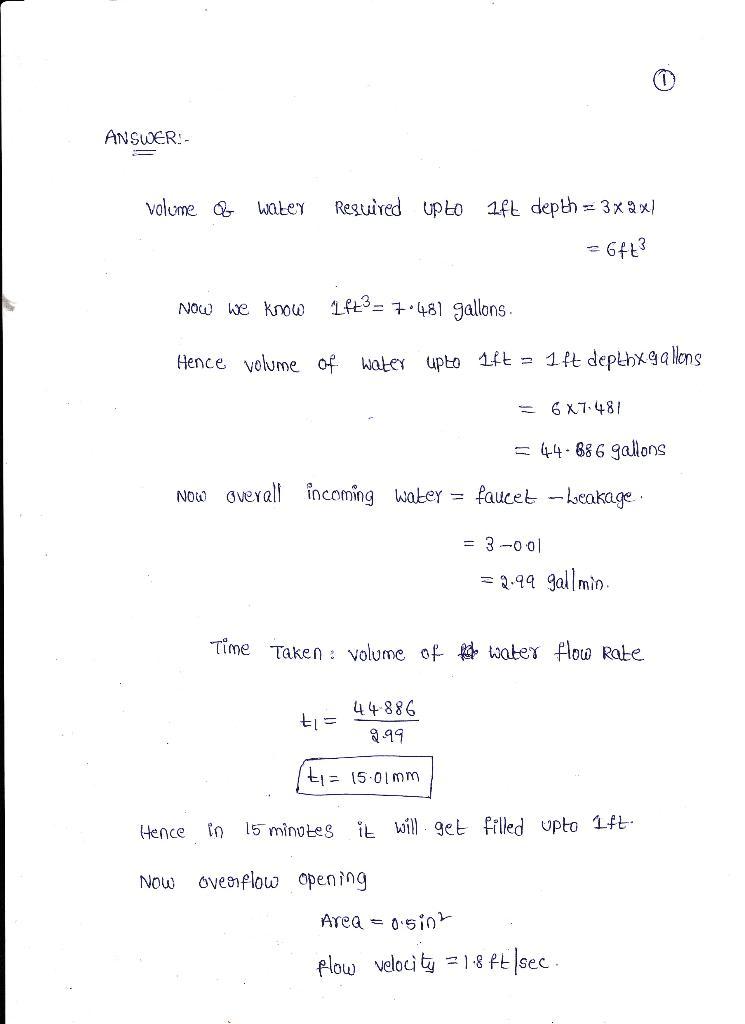 ①
ANSWER:-
Volume of water Required upto 1ft depth = 3x2x1
= 6ft³
Now we know 1ft³ = 7.481 gallons.
Hence volume of water upto 1ft = 1ft depthxgallons
= 6x7.481
= 44.886 gallons
Now overall incoming water = faucet - Leakage.
= 3-0.01
= 2.99 gal/min.
Time Taken : volume of water flow Rate
t₁ = 44.886
2.99
t₁ = 15.01mm
Hence in 15 minutes it will get filled upto 1ft.
Now overflow opening
Area = 0.5in²
flow velocity = 1.8 ft/sec.